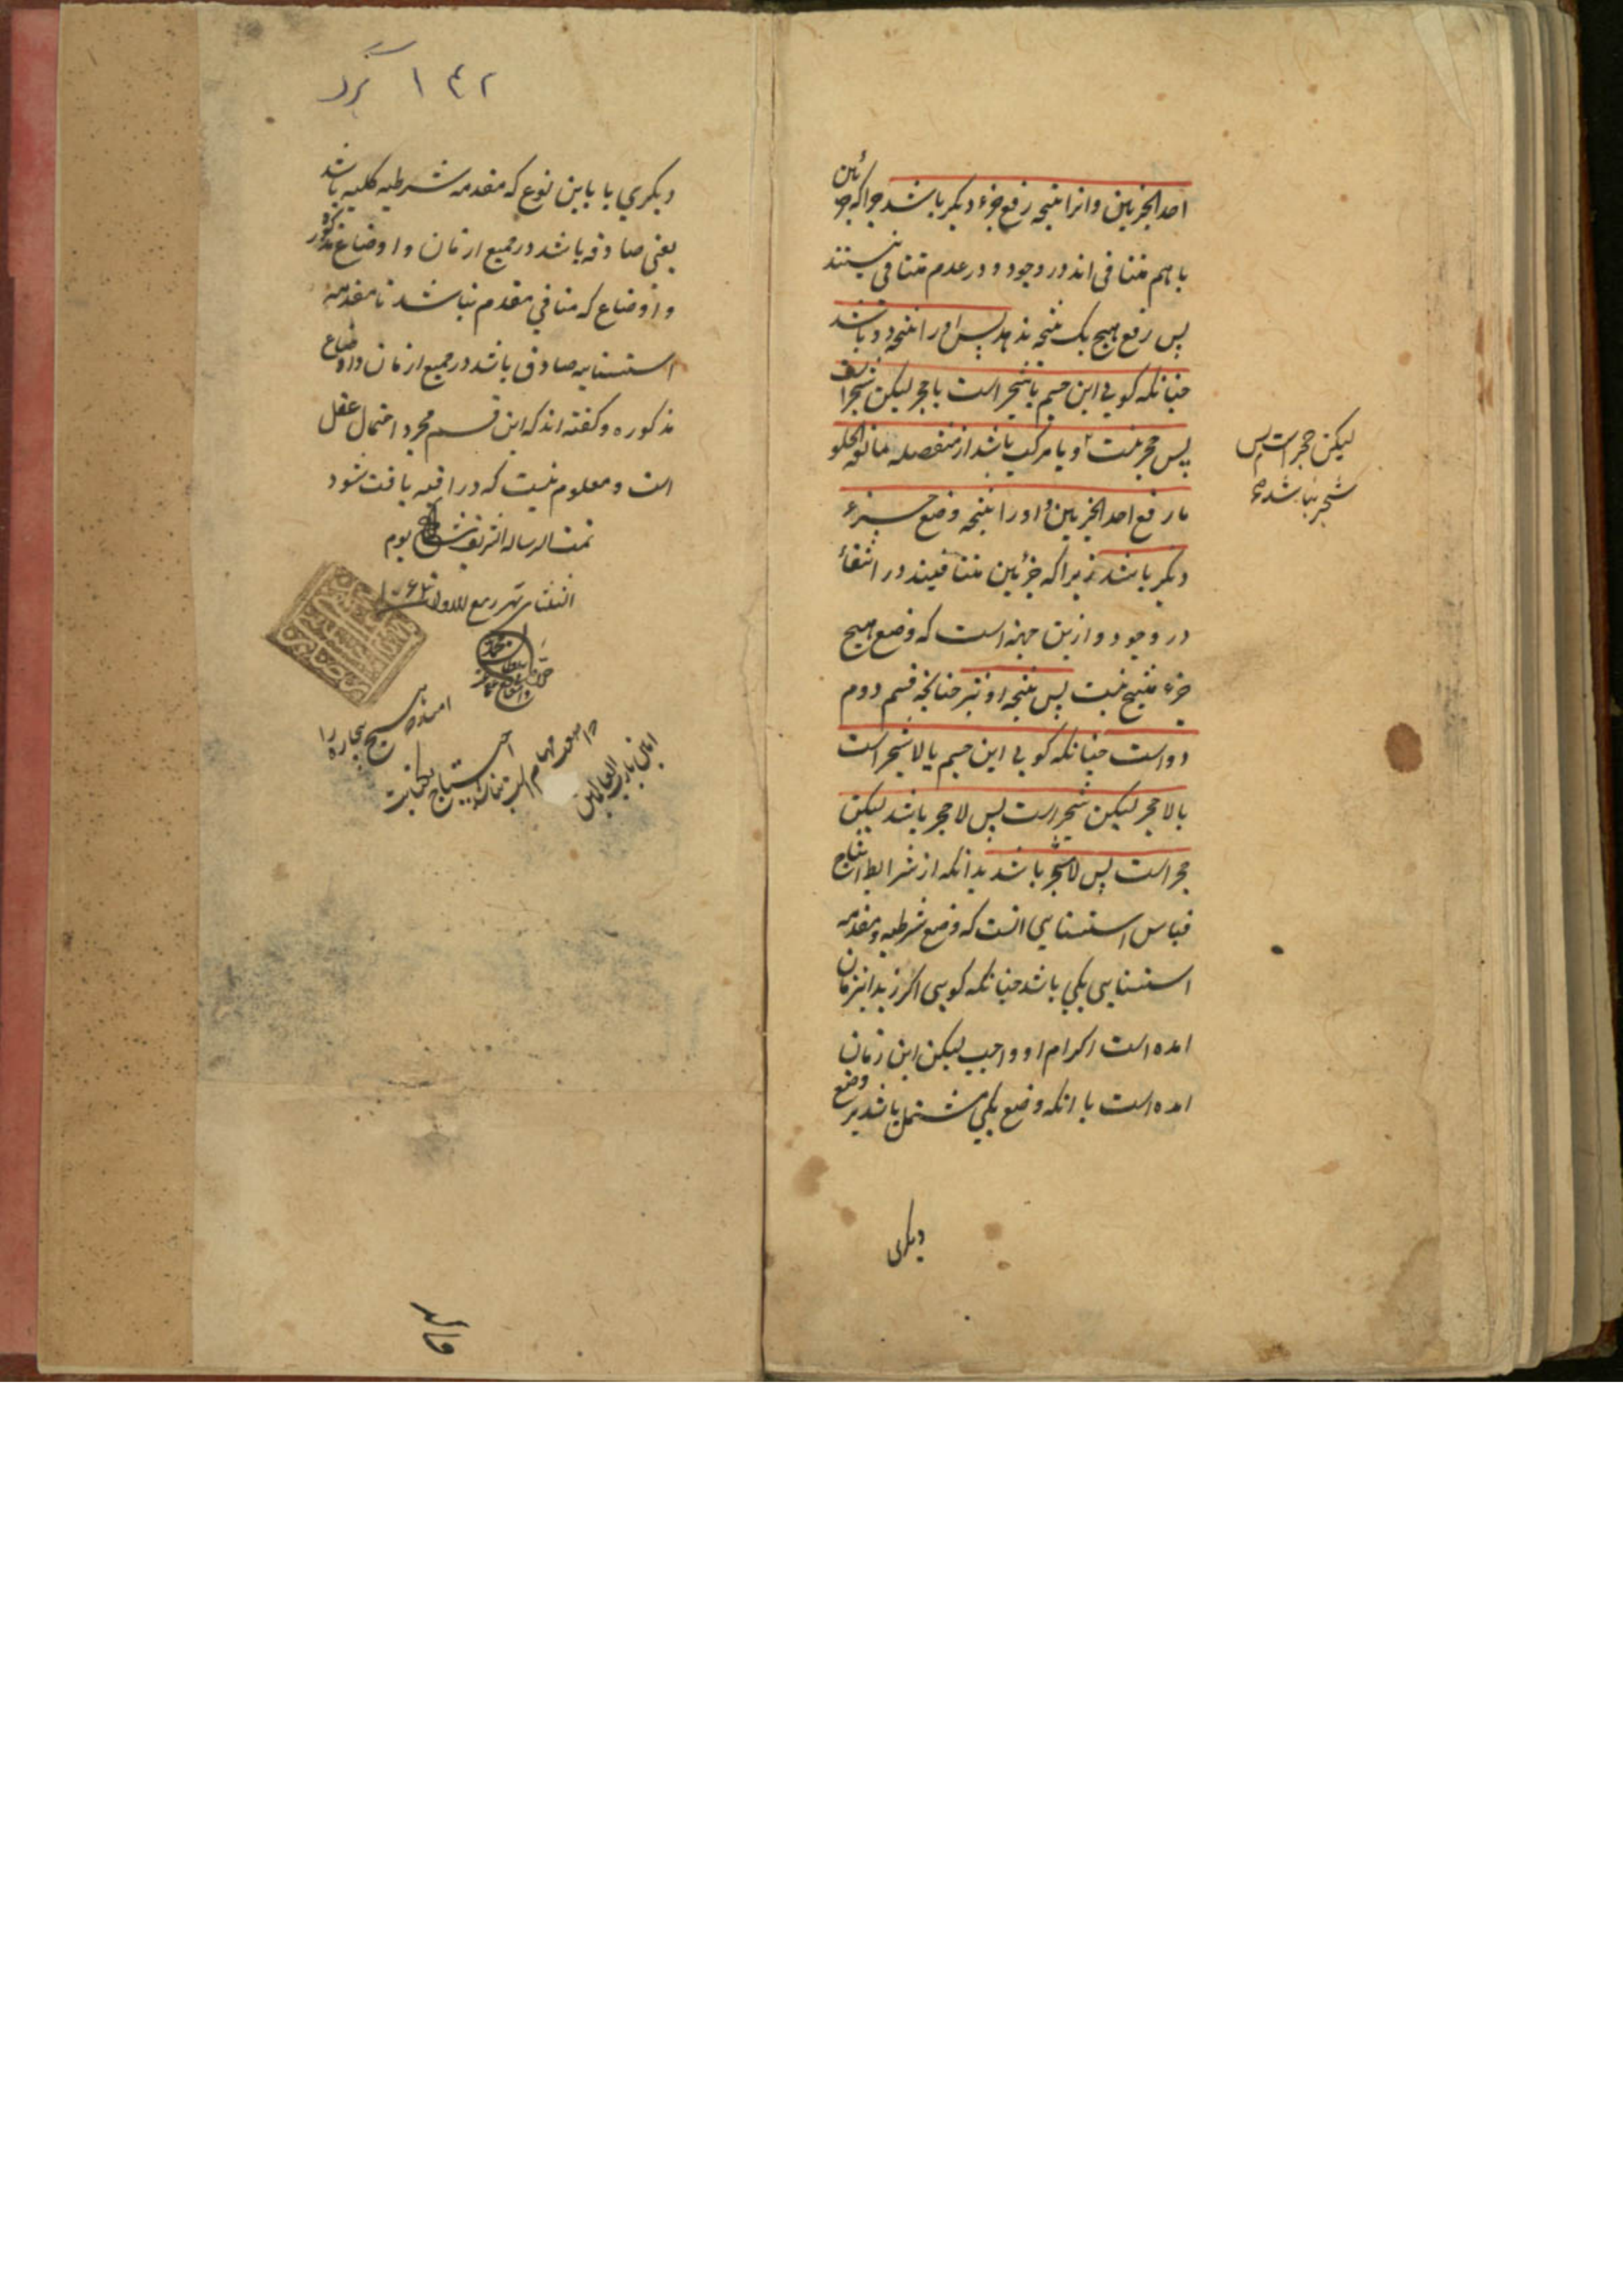 احد الجزئین وانرا نتیجه رفع جزء دیکر باشد جرا که جزئین
باهم متنافی اند در وجود و در عدم متنافی نیستند
پس رفع هیچ یک نتیجه ندهد پس او را نتیجه دو باشد
جنانکه کویی این جسم یا شجر است یا حجر لیکن شجر است
پس حجر نیست و یا مرکب باشد از منفصله مانعة الخلو
با رفع احد الجزئین و او را نتیجه وضع جزء
دیکر باشد زیرا که جزئین متنافیند در انتفاء
در وجود و ازین جهة است که وضع هیچ
جزء منتج نیست پس نتیجه او نیز جنانجه قسم دوم
دو است جنانکه کویی این جسم یا لا شجر است
یا لا حجر لیکن شجر است پس لا حجر باشد لیکن
حجر است پس لا شجر باشد بدانکه از شرایط انتاج
قیاس استثنایی انست که وضع شرطیه و مقدمه
استثنایی یکی باشد جنانکه کویی اکر زید اینزمان
امده است اکرام او واجب لیکن این زمان
امده است یا انکه وضع یکی مشتمل باشد بر وضع
دیکری
لیکن حجر است پس
شجر نباشد
۱۴۲ کرد
دیکری یا باین نوع که مقدمه شرطیه کلیه باشد
یعنی صادقه باشد در جمیع ازمان و اوضاع مذکوره
و اوضاع که منافی مقدم نباشد تا مقدمه
استثناییه صادق باشد در جمیع ازمان و اوضاع
مذکوره و کفته اند که این قسم مجرد احتمال عقل
است و معلوم نیست که در اقیسه یافت شود
تمت الرساله الشریفه یوم
شهر ربیع الاول
امین یا رب العالمین